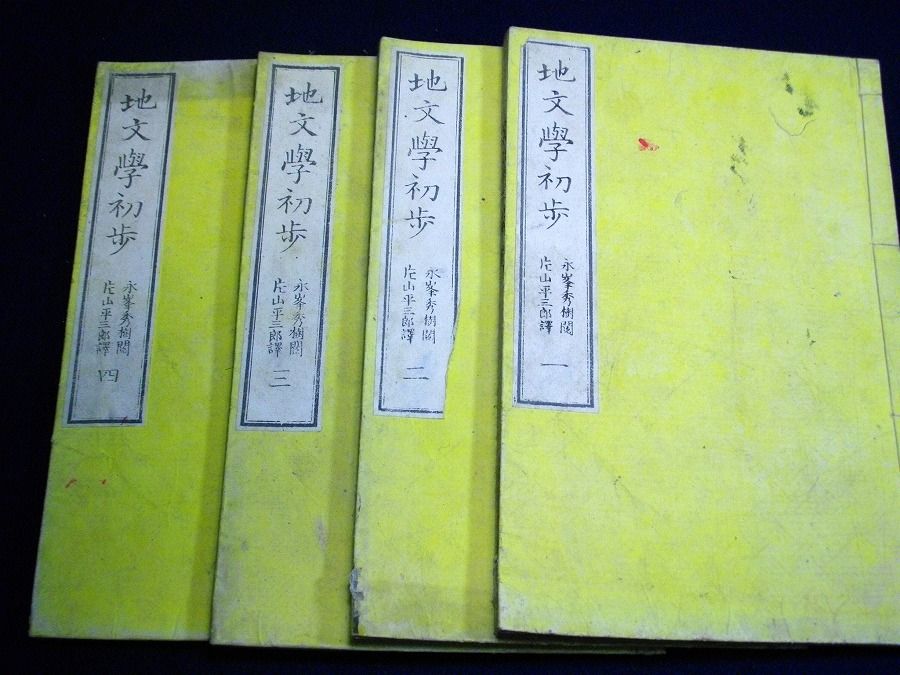 地文學初歩
永峯秀樹閱
片山平三郎譯
一
地文學初歩
永峯秀樹閱
片山平三郎譯
二
地文學初歩
永峯秀樹閱
片山平三郎譯
三
地文學初歩
永峯秀樹閱
片山平三郎譯
四